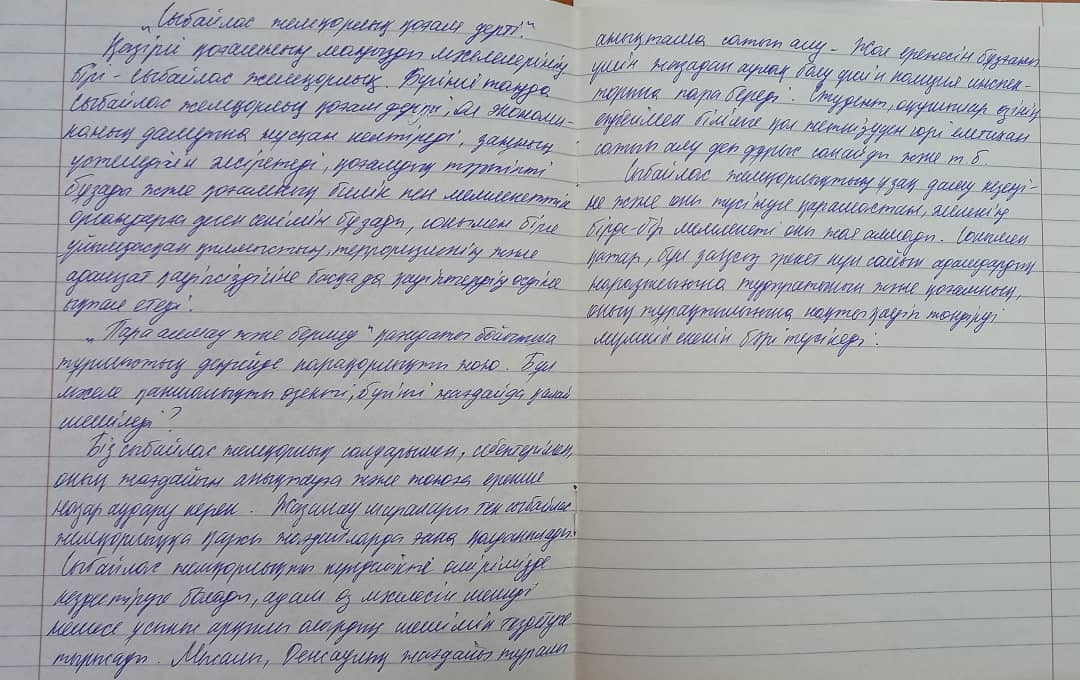 „Сыбайлас жемқорлық қоғам дерті."
Қазіргі қоғамның маңызды мәселелерінің
бірі - сыбайлас жемқорлық. Бүгінгі таңда
сыбайлас жемқорлық қоғам дерті, ол экономи-
каның дамуына нұқсан келтіреді, заңның
үстемдігін әлсіретеді, қоғамдық тәртіпті
бұзады және қоғамның билік пен мемлекеттік
органдарға деген сенімін бұзады, сонымен бірге
ұйымдасқан қылмыстың, терроризмнің және
адамзат қауіпсіздігіне басқа да қауіптердің өсуіне
ықпал етеді.
„Пара алмау және бермеу" қағидаты бойынша
тұрмыстық деңгейде парақорлықты жою. Бұл
мәселе қаншалықты өзекті, бүгінгі жағдайда қалай
шешіледі?
Біз сыбайлас жемқорлық салдарымен, себептерімен,
оның жағдайын анықтауға және жоюға ерекше
назар аудару керек. Жазалау шаралары тек сыбайлас
жемқорлыққа қарсы жағдайларда ғана қолданылады.
Сыбайлас жемқорлықты күнделікті өмірімізде
кездестіруге болады, адам өз мәселесін шешеді
немесе ұсыныс арқылы олардың шешімін тездетуге
тырысады. Мысалы, Денсаулық жағдайы туралы
анықтама сатып алу. Жол ережесін бұзғаны
үшін жазадан аулақ болу үшін полиция инспек-
торына пара береді. Студент, оқушылар өзінің
еңбегімен білімге қол жеткізуден гөрі емтихан
сатып алу деп дұрыс санайды және т.б.
Сыбайлас жемқорлықтың ұзақ даму кезеңі-
не және оны түсінуге қарамастан, әлемнің
бірде-бір мемлекеті оны жоя алмады. Сонымен
қатар, бұл заңсыз әрекет күн сайын адамдардың
наразылығын тудыратынын және қоғамның,
оның тұрақтылығына нақты қауіп төндіруі
мүмкін екенін бәрі түсінеді.